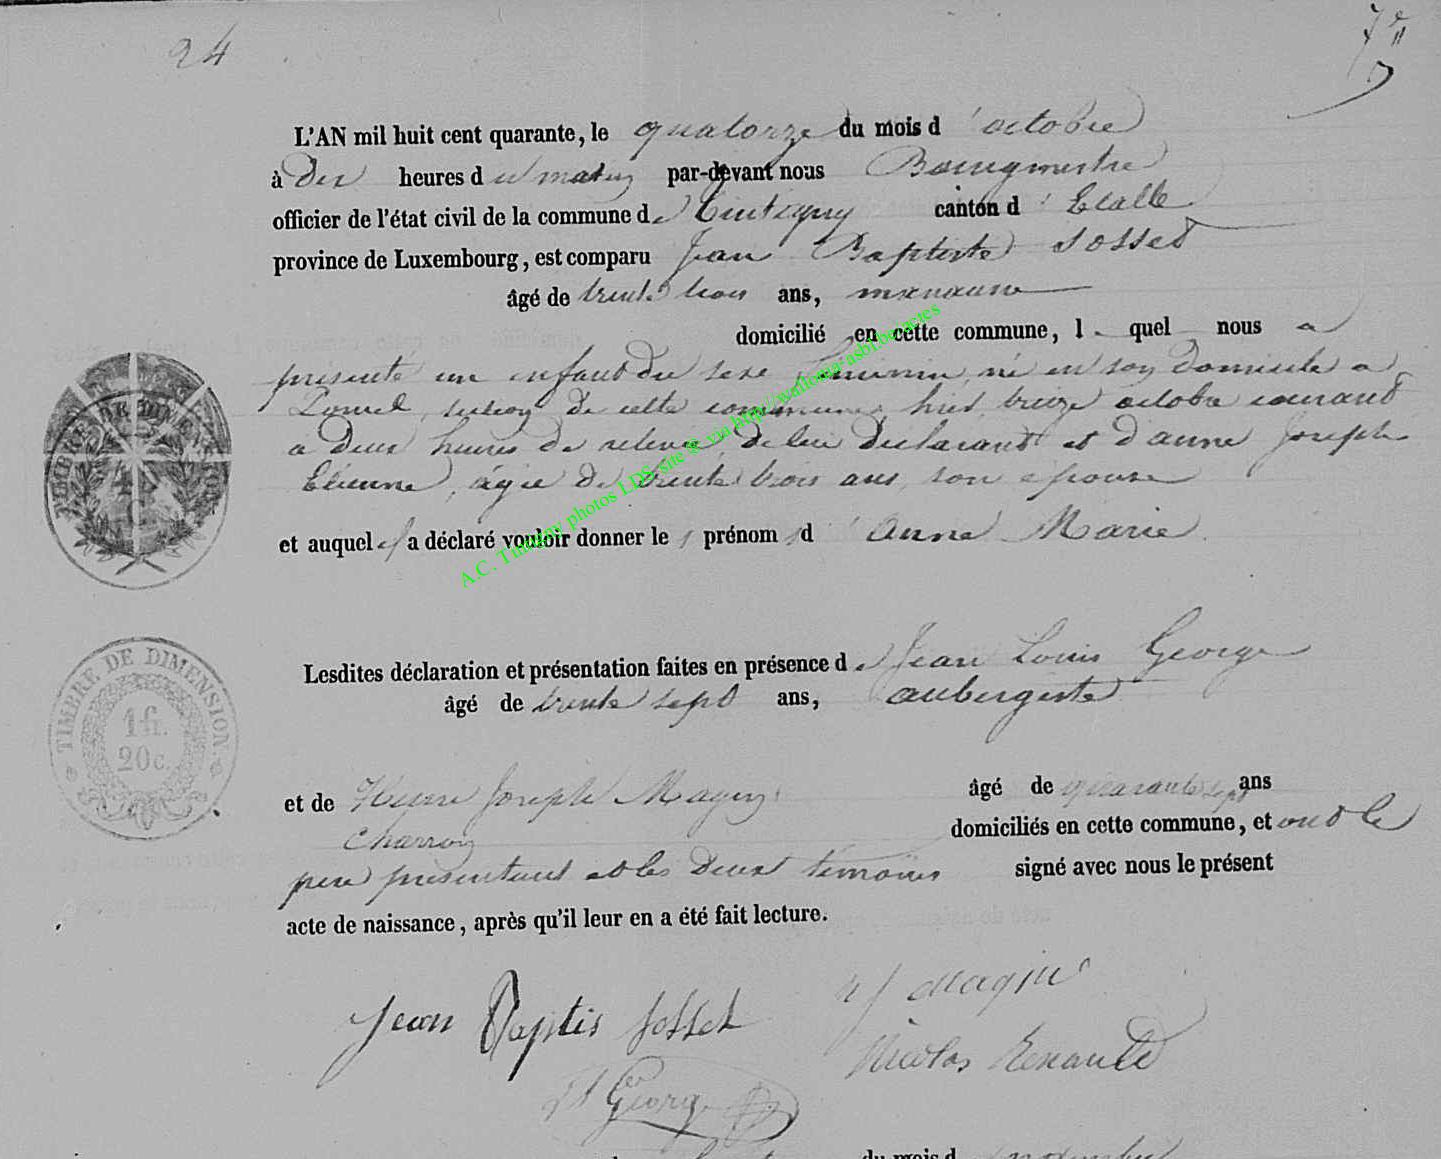 24
7e
L'AN mil huit cent quarante, le quatorze du mois d'octobre
à dix heures du matin par-devant nous Bourgmestre
officier de l'état civil de la commune de Tintigny canton d'Etalle
province de Luxembourg, est comparu Jean Baptiste Josset
âgé de trente trois ans, manœuvre
domicilié en cette commune, lequel nous a
présenté un enfant du sexe féminin, né en son domicile a
section de cette commune hier treize octobre courant
a deux heures de relevée de lui déclarant et d'anne Joseph
Etienne, agée de trente trois ans, son épouse
et auquel il a déclaré vouloir donner les prénoms d'Anne Marie
Lesdites déclaration et présentation faites en présence de Jean Louis George
âgé de trente sept ans, aubergiste
et de Joseph Magin âgé de quarante sept ans
charron domiciliés en cette commune, et ont le
pere présentant et les deux témoins signé avec nous le présent
acte de naissance, après qu'il leur en a été fait lecture.
Jean Baptis Josset Magin
Nicolas Renauld
George
du mois d novembre
TIMBRE DE DIMENSION.
1 fr.
20 c.
A.C. Tintigny photos LDS, site & via http://wallonia-asbl.be/actes